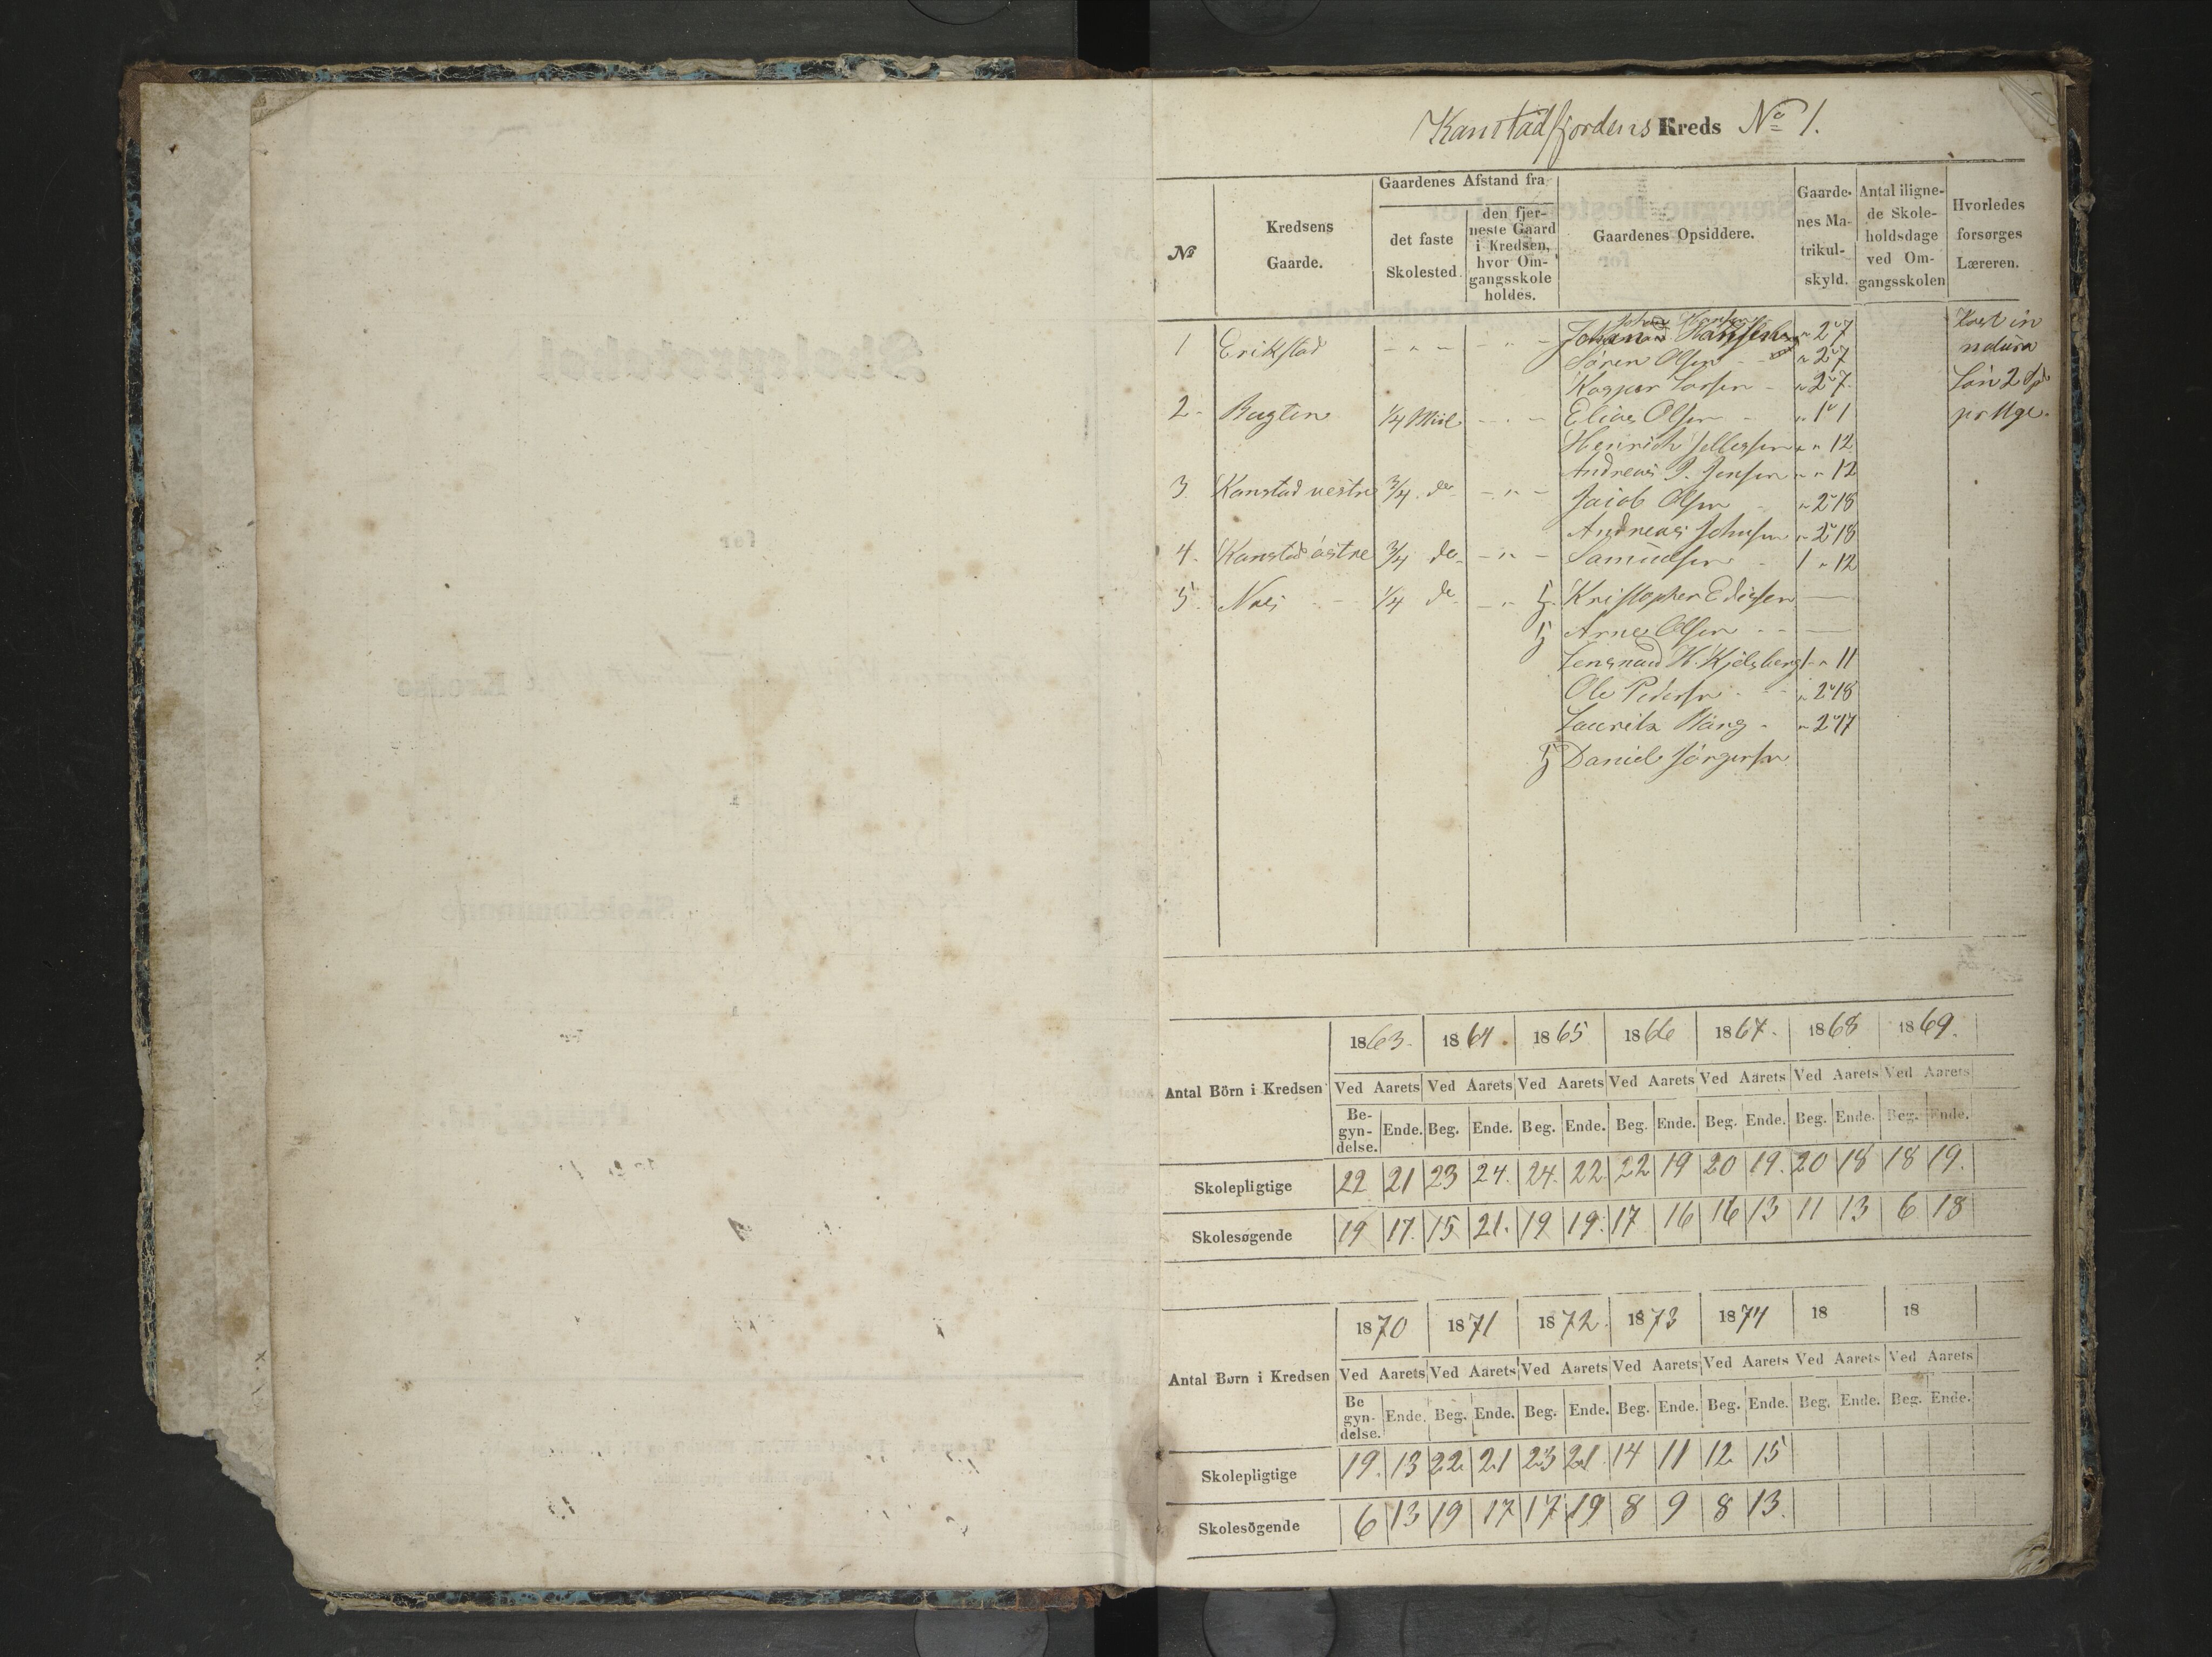 Kanstadfjordens Kreds No 1.
No
Kredsens Gaarde.
Gaardenes Afstand fra
det faste Skolested.
den fjerneste Gaard i Kredsen, hvor Omgangsskole holdes.
Gaardenes Opsiddere.
Gaardenes Matrikulskyld.
Antal ilignede Skoleholdsdage ved Omgangsskolen
Hvorledes forsørges Læreren.
1 Erikstad - " - - " - Johan Hansen " 2 " 7 Kost in
Sören Olsen - " 2 " 7 natura
Kasper Larsen - " 2 " 7 Lön 2 Spd
2. Bugten 1/4 Miil - " - Elias Olsen - " 1 " 1 pr Uge.
Henrich Jellessen " " 12
Andreas P. Jensen " " 12
3. Kanstad vestre 3/4 do - " - Jacob Olsen " 2 " 18
Andreas Johnsen " 2 " 18
4. Kanstad östre 3/4 do - " - Samuelsen - 1 " 12
5. Næs - - 1/4 do - " Kristopher Ediassen —
Arne Olsen - - —
H. Kjelsberg 1 - " 11
Ole Pedersen - - " 2 " 18
Lauritz - " 2 " 17
Daniel Jörgensen
1863. 1864. 1865 1866 1867. 1868 1869.
Antal Börn i Kredsen Ved Aarets Ved Aarets Ved Aarets Ved Aarets Ved Aarets Ved Aarets Ved Aarets
Begyndelse. Ende. Beg. Ende. Beg. Ende. Beg. Ende. Beg. Ende. Beg. Ende. Beg. Ende.
Skolepligtige 22 21 23 24. 24. 22. 22 19 20 19. 20 18 18 19.
Skolesøgende 19 17. 15 21. 19 19. 17 16 16 13 11 13 6 18
1870 1871 1872. 1873 1874 18 18
Antal Børn i Kredsen Ved Aarets Ved Aarets Ved Aarets Ved Aarets Ved Aarets Ved Aarets Ved Aarets
Begyndelse. Ende. Beg. Ende. Beg. Ende. Beg. Ende. Beg. Ende. Beg. Ende. Beg. Ende.
Skolepligtige 19. 13 22 21 23 21 14 11 12 15
Skolesögende 6 13 19 17 17 19 8 9 8 13.